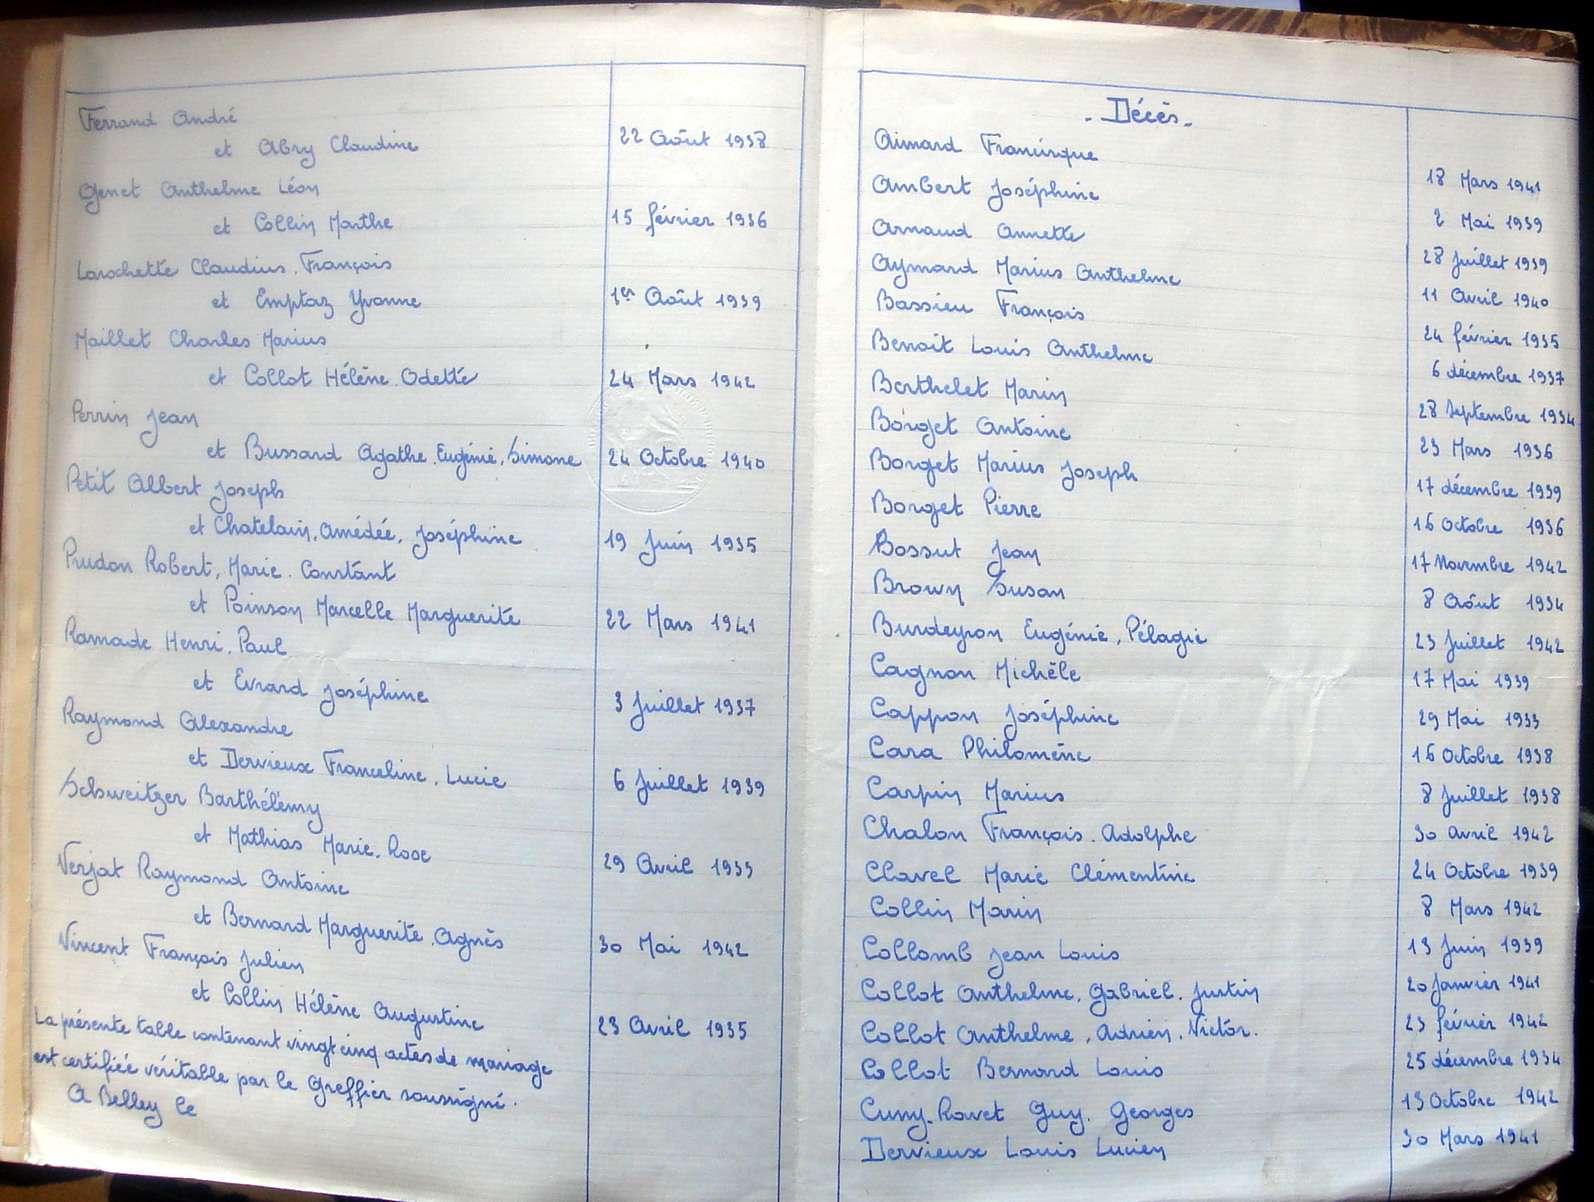 Ferrand André
et Abry Claudine 22 Août 1938
Genet Anthelme Léon
et Collin Marthe 15 février 1936
Larochette Claudius, François
et Emptaz Yvonne 1er Août 1939
Maillet Charles Marius
et Collot Hélène Odette 24 Mars 1942
Perrin Jean
et Bussard Agathe, Eugénie, Simone 24 Octobre 1940
Petit Albert Joseph
et Chatelain, Amédée, Joséphine 19 Juin 1935
Prudon Robert, Marie, Constant
et Poinson Marcelle Marguerite 22 Mars 1941
Ramade Henri, Paul
et Evrard Joséphine 3 Juillet 1937
Raymond Alexandre
et Dervieux Franceline, Lucie 6 Juillet 1939
Schweitzer Barthélémy
et Mathias Marie, Rose 29 Avril 1933
Verjat Raymond Antoine
et Bernard Marguerite Agnès 30 Mai 1942
Vincent François Julien
et Collin Hélène Augustine 23 Avril 1935
La présente table contenant vingt cinq actes de mariage
est certifiée véritable par le Greffier soussigné.
A Belley le
- Décès -
Aimard Francisque 18 Mars 1941
Ambert Joséphine 2 Mai 1939
Arnaud Annette 28 Juillet 1939
Aymard Marius Anthelme 11 Avril 1940
Bassieu François 24 février 1935
Benoit Louis Anthelme 6 décembre 1937
Berthelet Marin 28 Septembre 1934
Borget Antoine 23 Mars 1936
Borget Marius Joseph 17 décembre 1939
Borget Pierre 16 Octobre 1936
Bossut Jean 17 Novembre 1942
Brown Susan 8 Août 1934
Burdeyron Eugénie, Pélagie 23 Juillet 1942
Cagnon Michèle 17 Mai 1939
Cappon Joséphine 29 Mai 1933
Cara Philomène 16 Octobre 1938
Carpin Marius 8 Juillet 1938
Chalon François Adolphe 30 avril 1942
Clavel Marie Clémentine 24 Octobre 1939
Collin Marin 8 Mars 1942
Collomb Jean Louis 13 Juin 1939
Collot Anthelme, Gabriel, Justin 20 Janvier 1941
Collot Anthelme, Adrien, Victor. 23 février 1942
Collot Bernard Louis 25 décembre 1934
Cuny-Rovet Guy, Georges 13 Octobre 1942
Dervieux Louis Lucien 30 Mars 1941